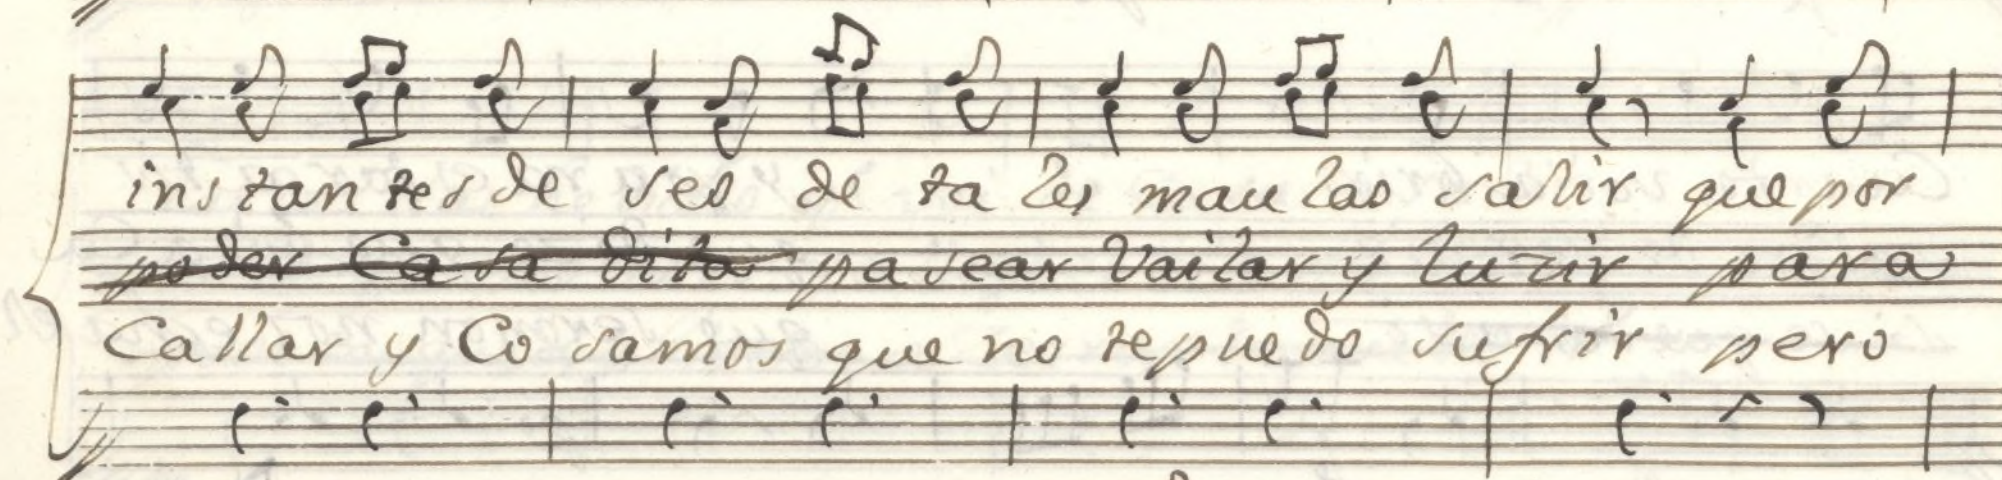 instantes de ses de ta les mau las salir que por
po der Ca sa dita pa sear Vailar y lu zir para
Callar y Co samos que no te pue do sufrir pero